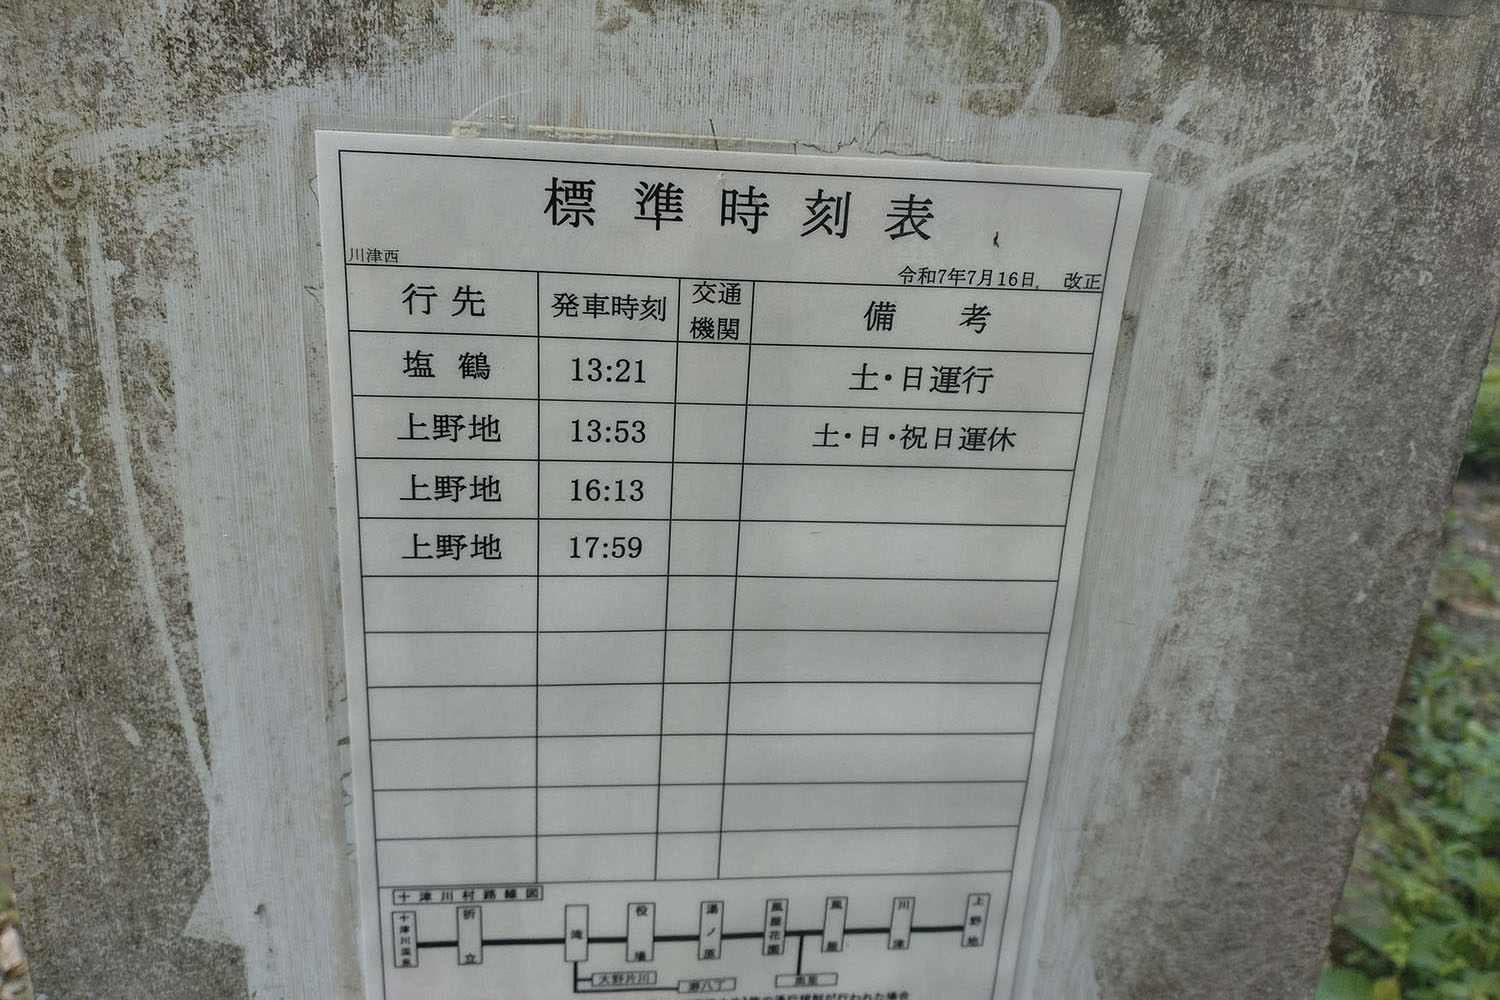 標準時刻表
川津西
令和7年7月16日 改正
行先 発車時刻 交通機関 備考
塩鶴 13:21 土・日運行
上野地 13:53 土・日・祝日運休
上野地 16:13
上野地 17:59
十津川村路線図
十津川温泉 折立 滝 役場 湯ノ原 風屋花園 風屋 川津 上野地
大野片川 瀞八丁